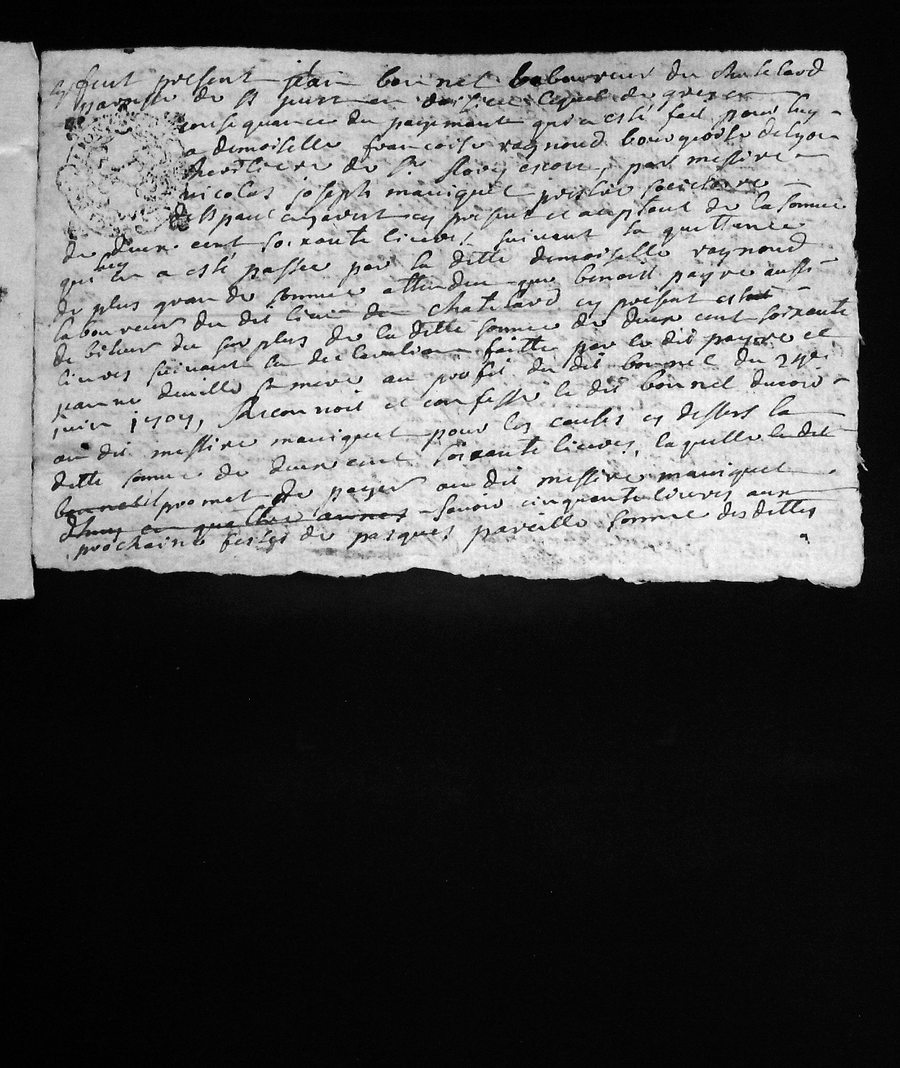 fut present jean bonnel laboureur du chatelard
parroisse de St lequel de gré en
consequance du payement qui a esté fait pour luy
a demoiselle francoise raynond bourgeoise de lyon
heritiere de Sr escot, par messire
nicolas joseph maniquet prestre societaire
de St paul cy present et acceptant de la somme
de deux cent soixante livres, suivant la quittance
qui luy en a esté passée par la ditte demoiselle raynond
de plus grande somme attendu que benoist payre aussi
laboureur du dit lieu du chatelard cy present estoit
debiteur du surplus de la ditte somme de deux cent soixante
livres suivant la declaration faitte par le dit payre et
jeanne sa mere au profit du dit bonnel du 24e
juin 1707, reconnoit et confesse le dit bonnel devoir
au dit messire maniquet pour les causes cy dessus la
ditte somme de deux cent soixante livres, laquelle le dit
bonnel promet de payer au dit messire maniquet
d'huy en quattre annees savoir cinquante livres aux
prochaine festes de pasques pareille somme des dittes